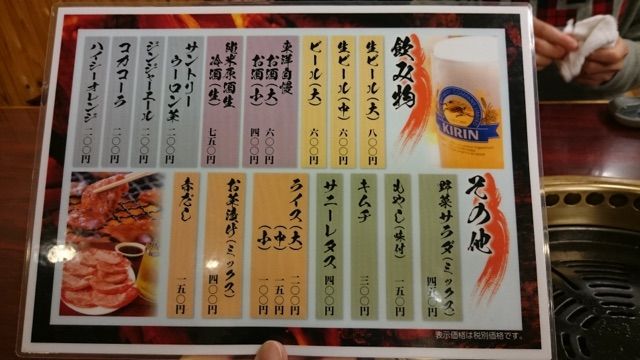 飲み物
KIRIN
生ビール(大) 八〇〇円
生ビール(中) 六〇〇円
ビール(大) 六〇〇円
東洋自慢
お酒(大) 六〇〇円
お酒(小) 四〇〇円
純米原酒生
冷酒(生) 七五〇円
サントリー
ウーロン茶 二〇〇円
ジンジャーエール 二〇〇円
コカコーラ 二〇〇円
ハイジーオレンジ 二〇〇円
その他
野菜サラダ(ミックス) 四五〇円
もやし(味付) 一五〇円
キムチ 三〇〇円
サニーレタス 四〇〇円
ライス(大) 二〇〇円
(中) 一五〇円
(小) 一〇〇円
お茶漬け(ミックス) 四〇〇円
赤だし 一五〇円
表示価格は税別価格です。